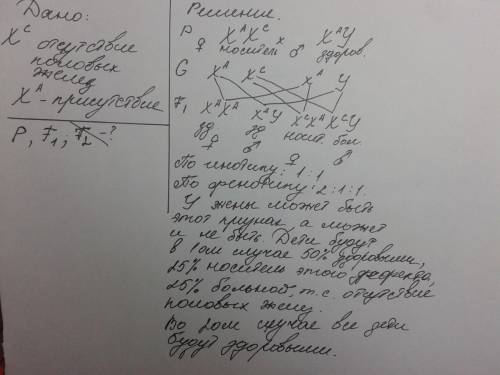 Дано:
X^c отсутствие
половых
желез
X^A - присутствие
P, F₁; F₂ - ?
Решение.
P ♀ X^A X^c × ♂ X^A Y
носитель здоров.
G X^A X^c X^A Y
F₁ X^A X^A X^A Y X^c X^A X^c Y
зд. зд носит. бол.
♀ ♂ ♀ ♂
По генотипу: 1:1
По фенотипу: 2:1:1.
У жены может быть
этот признак, а может
и не быть. Дети будут
в 1ом случае 50% здоровыми,
25% носитель этого дефекта,
25% больной, т.е. отсутствие
половых желез.
Во 2ом случае все дети
будут здоровыми.